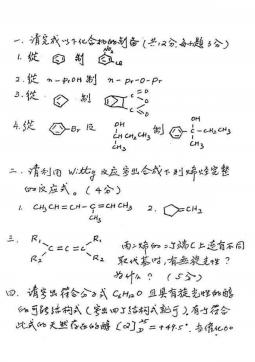 一. 请完成以下化合物的制备 (共12分, 每小题3分)
1. 从 制 NO₂
2. 从 n-PrOH 制 n-Pr-O-Pr
3. 从 制 C O O C O
4. 从 -Br 及 OH CH CH₃ CH₂CH₃ 制 OH C-CH₂CH₃ CH₃
二. 请利用 Wittig 反应写出合成下列烯烃完整
的反应式。(4分)
1. CH₃CH=CH-C=CHCH₃ CH₃ 2. =CH₂
三. R₁ R₂ C=C=C R₁ R₂
丙二烯的二端C上连有不同
取代基时, 有无旋光性?
为什么? (5分)
四. 请写出符合分子式 C₆H₁₂O 且具有旋光性的醇
的可能结构式 (写出四个结构式就可), 有个符合
此式的天然存在的醇 [α]D²⁵=+49.5°.